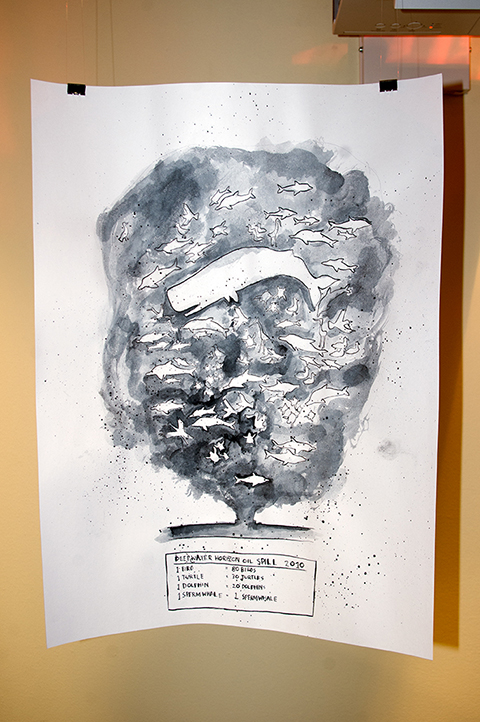 DEEPWATER HORIZON OIL SPILL 2010
1 BIRD = 80 BIRDS
1 TURTLE = 30 TURTLES
1 DOLPHIN = 20 DOLPHINS
1 SPERMWHALE = 1 SPERMWHALE